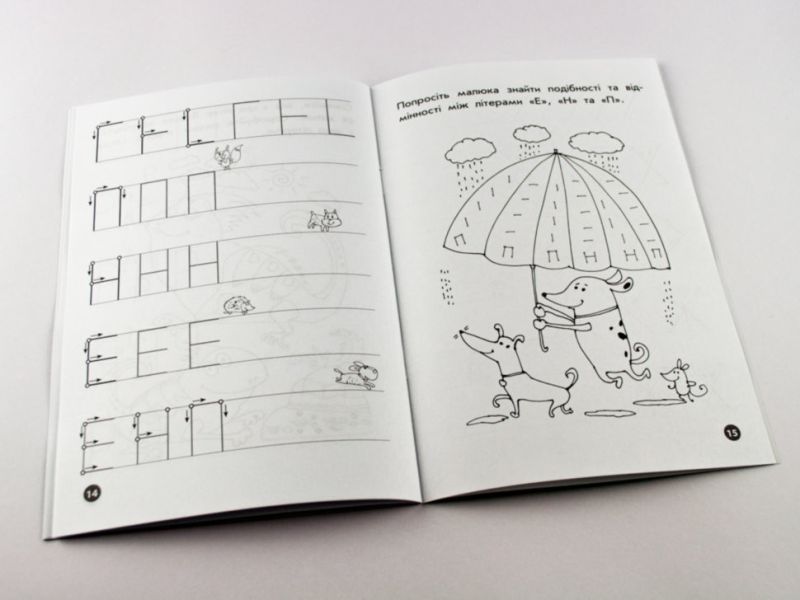 П П П
Н Н Н
Е
Е Н П
14
Попросіть малюка знайти подібності та від-
мінності між літерами «Е», «Н» та «П».
П П П Н П
15